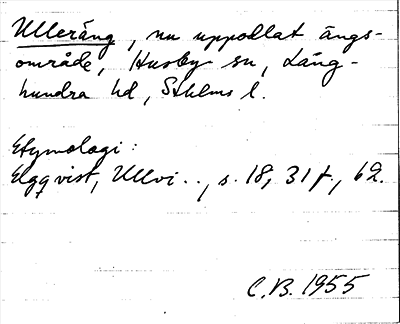 Ulleräng, nu uppodlat ängs-
område, Husby sn, Lång-
hundra hd, Sthlms l.
Etymologi:
Elgqvist, Ullvi.., s. 18, 31 f., 62.
C.B. 1955